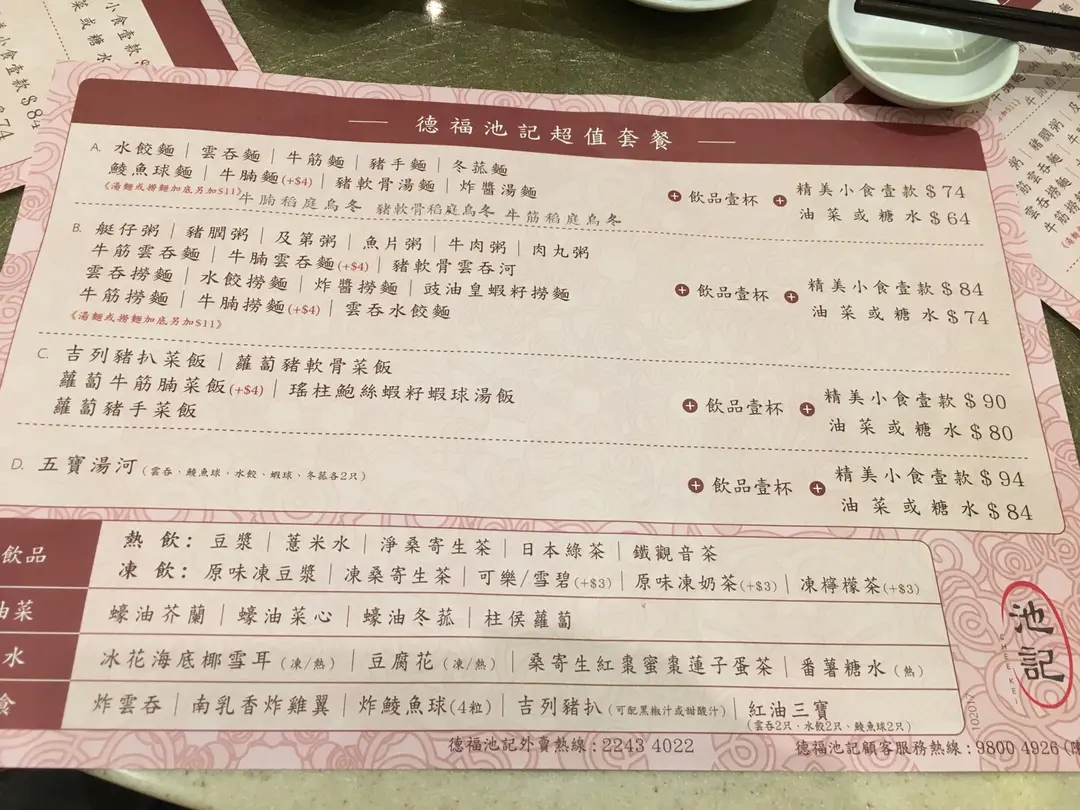 德福池記超值套餐
A. 水餃麵｜雲吞麵｜牛筋麵｜豬手麵｜冬菰麵
鯪魚球麵｜牛腩麵(+$4)｜豬軟骨湯麵｜炸醬湯麵
《湯麵或撈麵加底另加$11》
牛腩稻庭烏冬 豬軟骨稻庭烏冬 牛筋稻庭烏冬
+ 飲品壹杯 + 精美小食壹款 $74
油菜或糖水 $64
B. 艇仔粥｜豬膶粥｜及第粥｜魚片粥｜牛肉粥｜肉丸粥
牛筋雲吞麵｜牛腩雲吞麵(+$4)｜豬軟骨雲吞河
雲吞撈麵｜水餃撈麵｜炸醬撈麵｜豉油皇蝦籽撈麵
牛筋撈麵｜牛腩撈麵(+$4)｜雲吞水餃麵
《湯麵或撈麵加底另加$11》
+ 飲品壹杯 + 精美小食壹款 $84
油菜或糖水 $74
C. 吉列豬扒菜飯｜蘿蔔豬軟骨菜飯
蘿蔔牛筋腩菜飯(+$4)｜瑤柱鮑絲蝦籽蝦球湯飯
蘿蔔豬手菜飯
+ 飲品壹杯 + 精美小食壹款 $90
油菜或糖水 $80
D. 五寶湯河(雲吞、鯪魚球、水餃、蝦球、冬菰各2只)
+ 飲品壹杯 + 精美小食壹款 $94
油菜或糖水 $84
飲品
熱飲：豆漿｜薏米水｜淨桑寄生茶｜日本綠茶｜鐵觀音茶
凍飲：原味凍豆漿｜凍桑寄生茶｜可樂/雪碧(+$3)｜原味凍奶茶(+$3)｜凍檸檬茶(+$3)
油菜
蠔油芥蘭｜蠔油菜心｜蠔油冬菰｜柱侯蘿蔔
水
冰花海底椰雪耳(凍/熱)｜豆腐花(凍/熱)｜桑寄生紅棗蜜棗蓮子蛋茶｜番薯糖水(熱)
食
炸雲吞｜南乳香炸雞翼｜炸鯪魚球(4粒)｜吉列豬扒(可配黑椒汁或甜酸汁)｜紅油三寶
(雲吞2只、水餃2只、鯪魚球2只)
池記
CHEE KEI
102017
德福池記外賣熱線：2243 4022
德福池記顧客服務熱線：9800 4926